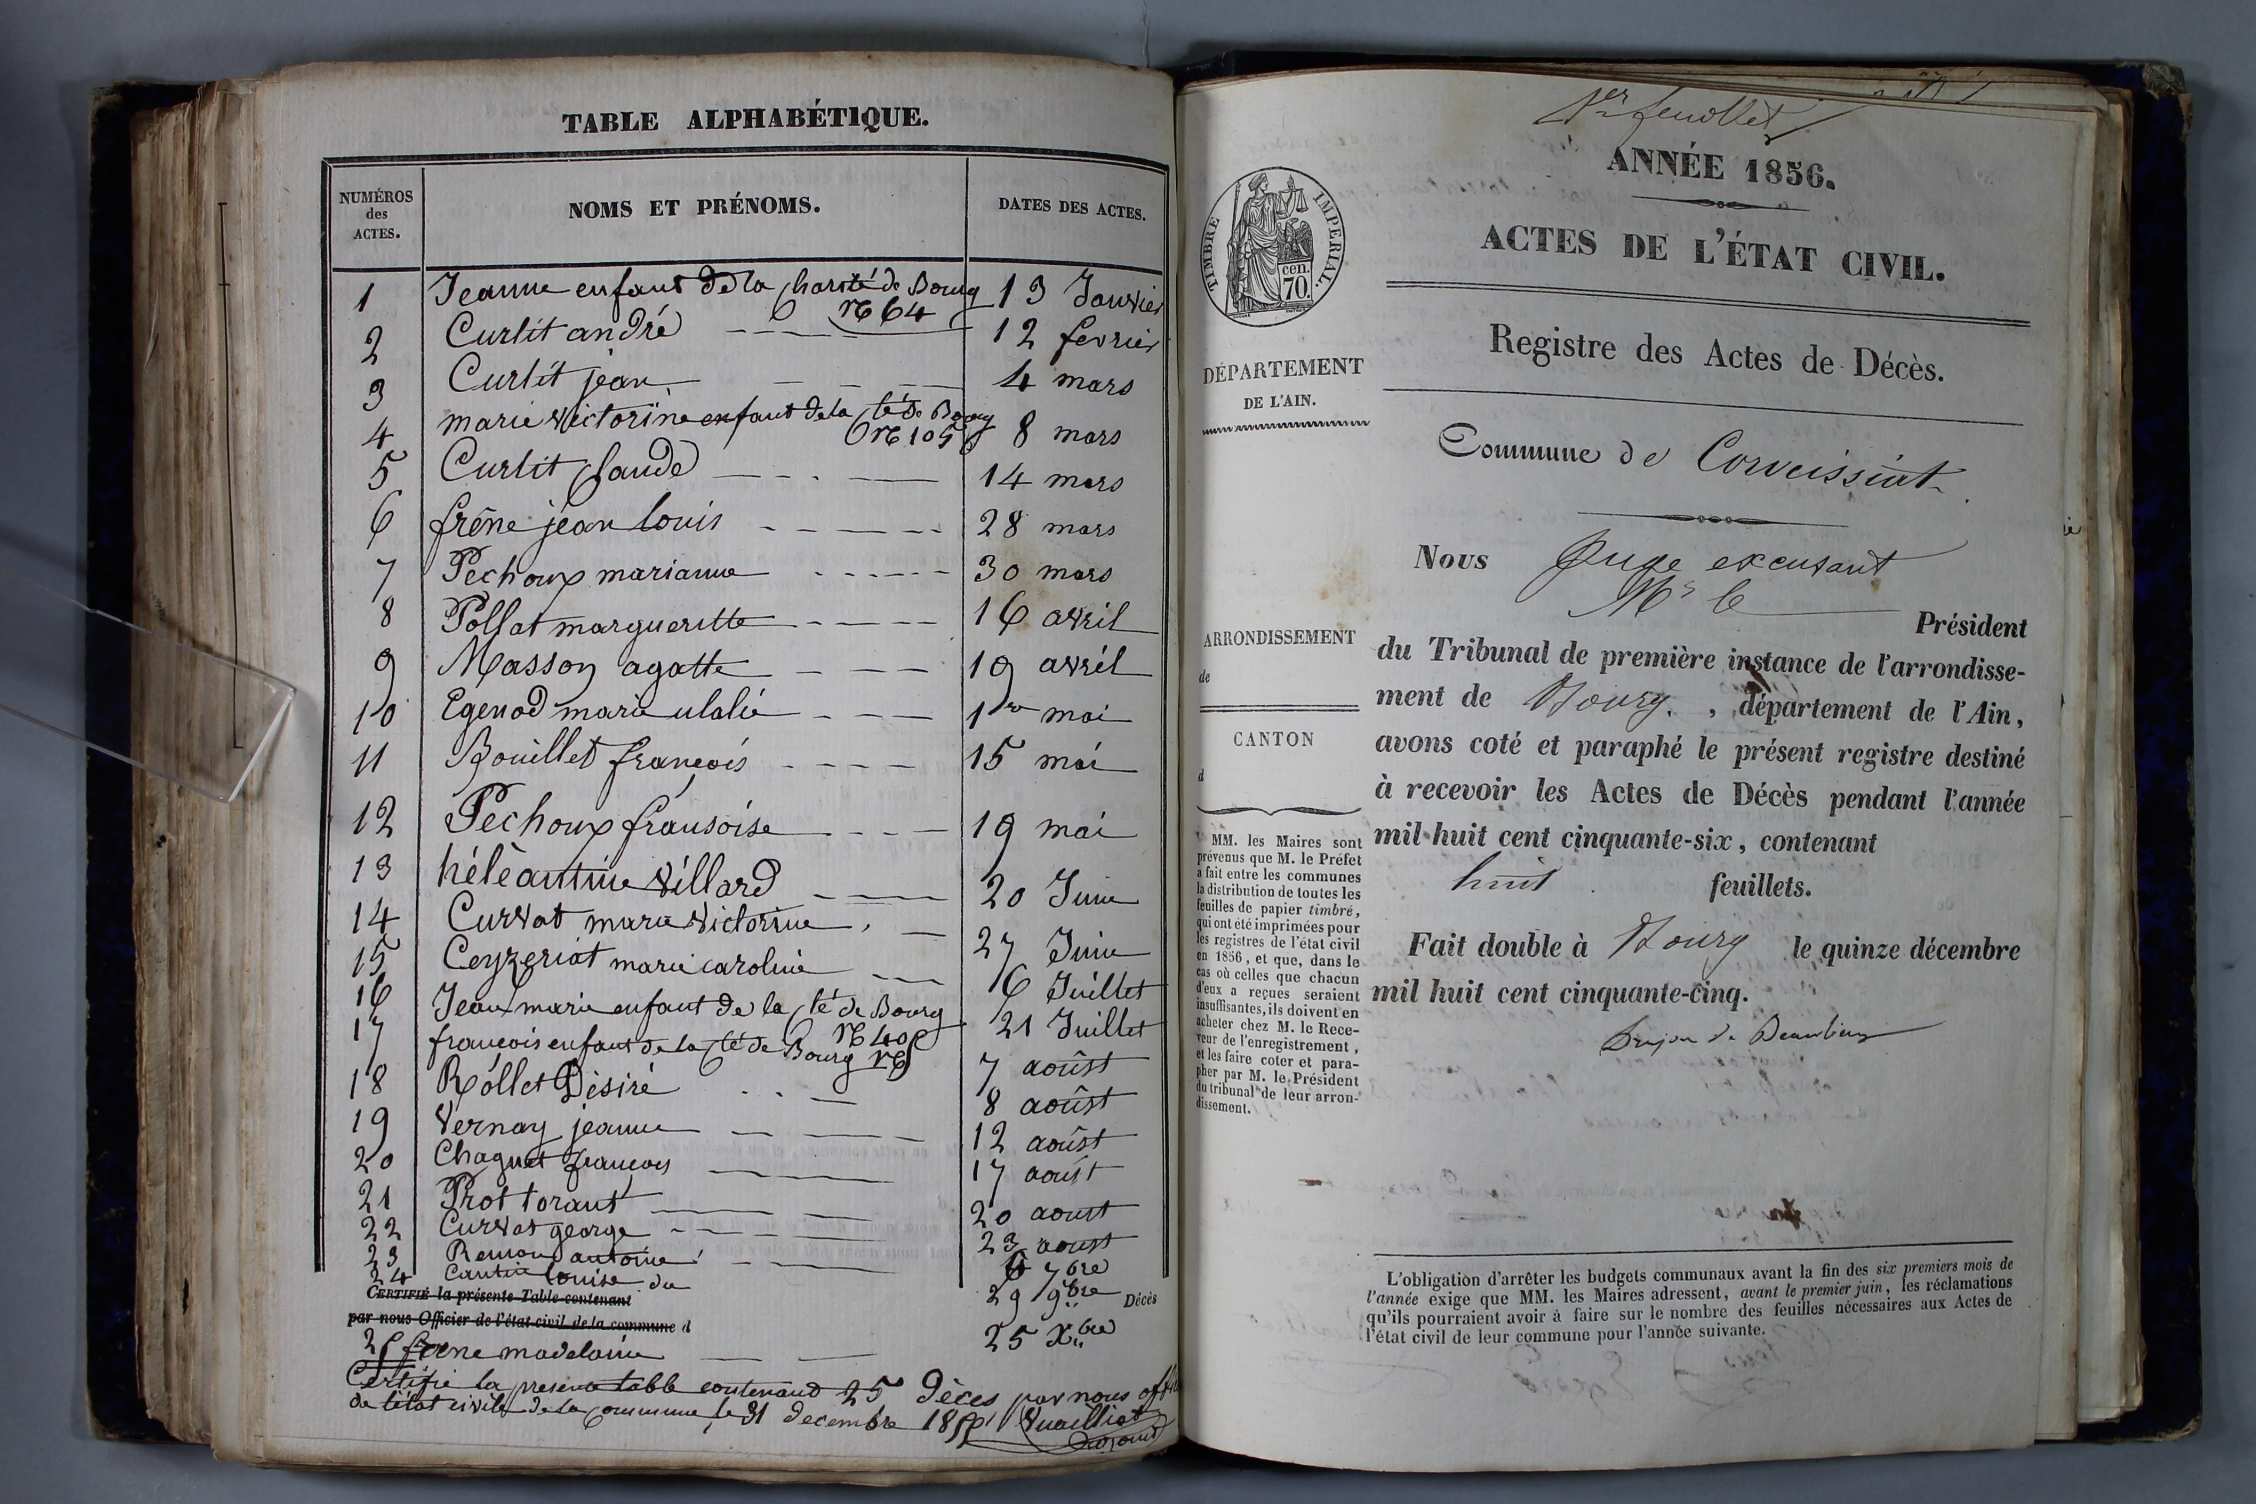 TABLE ALPHABÉTIQUE.
NUMÉROS des ACTES. NOMS ET PRÉNOMS. DATES DES ACTES.
1 Jeanne enfant de la Charité de Bourg 13 Janvier
n° 64
2 Curlit andré 12 fevrier
3 Curlit jean 4 mars
4 marie victorine enfant de la té de Bourg 8 mars
n° 105
5 Curlit Claude 14 mars
6 frêne jean louis 28 mars
7 Pechoux marianne 30 mars
8 Pollat margueritte 16 avril
9 Masson agatte 19 avril
10 Egenod marie ulalie 1er mai
11 Bouillet françois 15 mai
12 Pechoux fransoise 19 mai
13 hélèantine villard 20 Juin
14 Curvat marie victorine 27 Juin
15 Ceyzeriat marie caroline 6 Juillet
16 Jean marie enfant de la té de Bourg 21 Juillet
n° 40
17 françois enfant de la té de Bourg n° 7 août
18 Rollet Désiré 8 août
19 Vernay jeanne 12 août
20 Chagnet françois 17 août
21 Prost torant 20 aoust
22 Curvat george 23 aoust
23 antoine 7bre
24 louise 29 9bre
CERTIFIÉ la présente Table contenant du Décès
par nous Officier de l'état civil de la commune d
25 frene madelaine 25 Xbre
Certifie la presente table contenand 25 Dèces par nous
de l'état civile de la Commune le 31 decembre 185 Vuailliat
1er feuillet
ANNÉE 1856.
ACTES DE L'ÉTAT CIVIL.
TIMBRE IMPERIAL.
70 cen.
Registre des Actes de Décès.
DÉPARTEMENT
DE L'AIN.
Commune de Corveissiat
Nous Juge excusant
Mr le Président
ARRONDISSEMENT
de
CANTON
d
du Tribunal de première instance de l'arrondisse-
ment de Bourg, département de l'Ain,
avons coté et paraphé le présent registre destiné
à recevoir les Actes de Décès pendant l'année
mil huit cent cinquante-six, contenant
huit feuillets.
Fait double à Bourg le quinze décembre
mil huit cent cinquante-cinq.
MM. les Maires sont
prévenus que M. le Préfet
a fait entre les communes
la distribution de toutes les
feuilles de papier timbré,
qui ont été imprimées pour
les registres de l'état civil
en 1856, et que, dans le
cas où celles que chacun
d'eux a reçues seraient
insuffisantes, ils doivent en
acheter chez M. le Rece-
veur de l'enregistrement,
et les faire coter et para-
pher par M. le Président
du tribunal de leur arron-
dissement.
L'obligation d'arrêter les budgets communaux avant la fin des six premiers mois de
l'année exige que MM. les Maires adressent, avant le premier juin, les réclamations
qu'ils pourraient avoir à faire sur le nombre des feuilles nécessaires aux Actes de
l'état civil de leur commune pour l'année suivante.